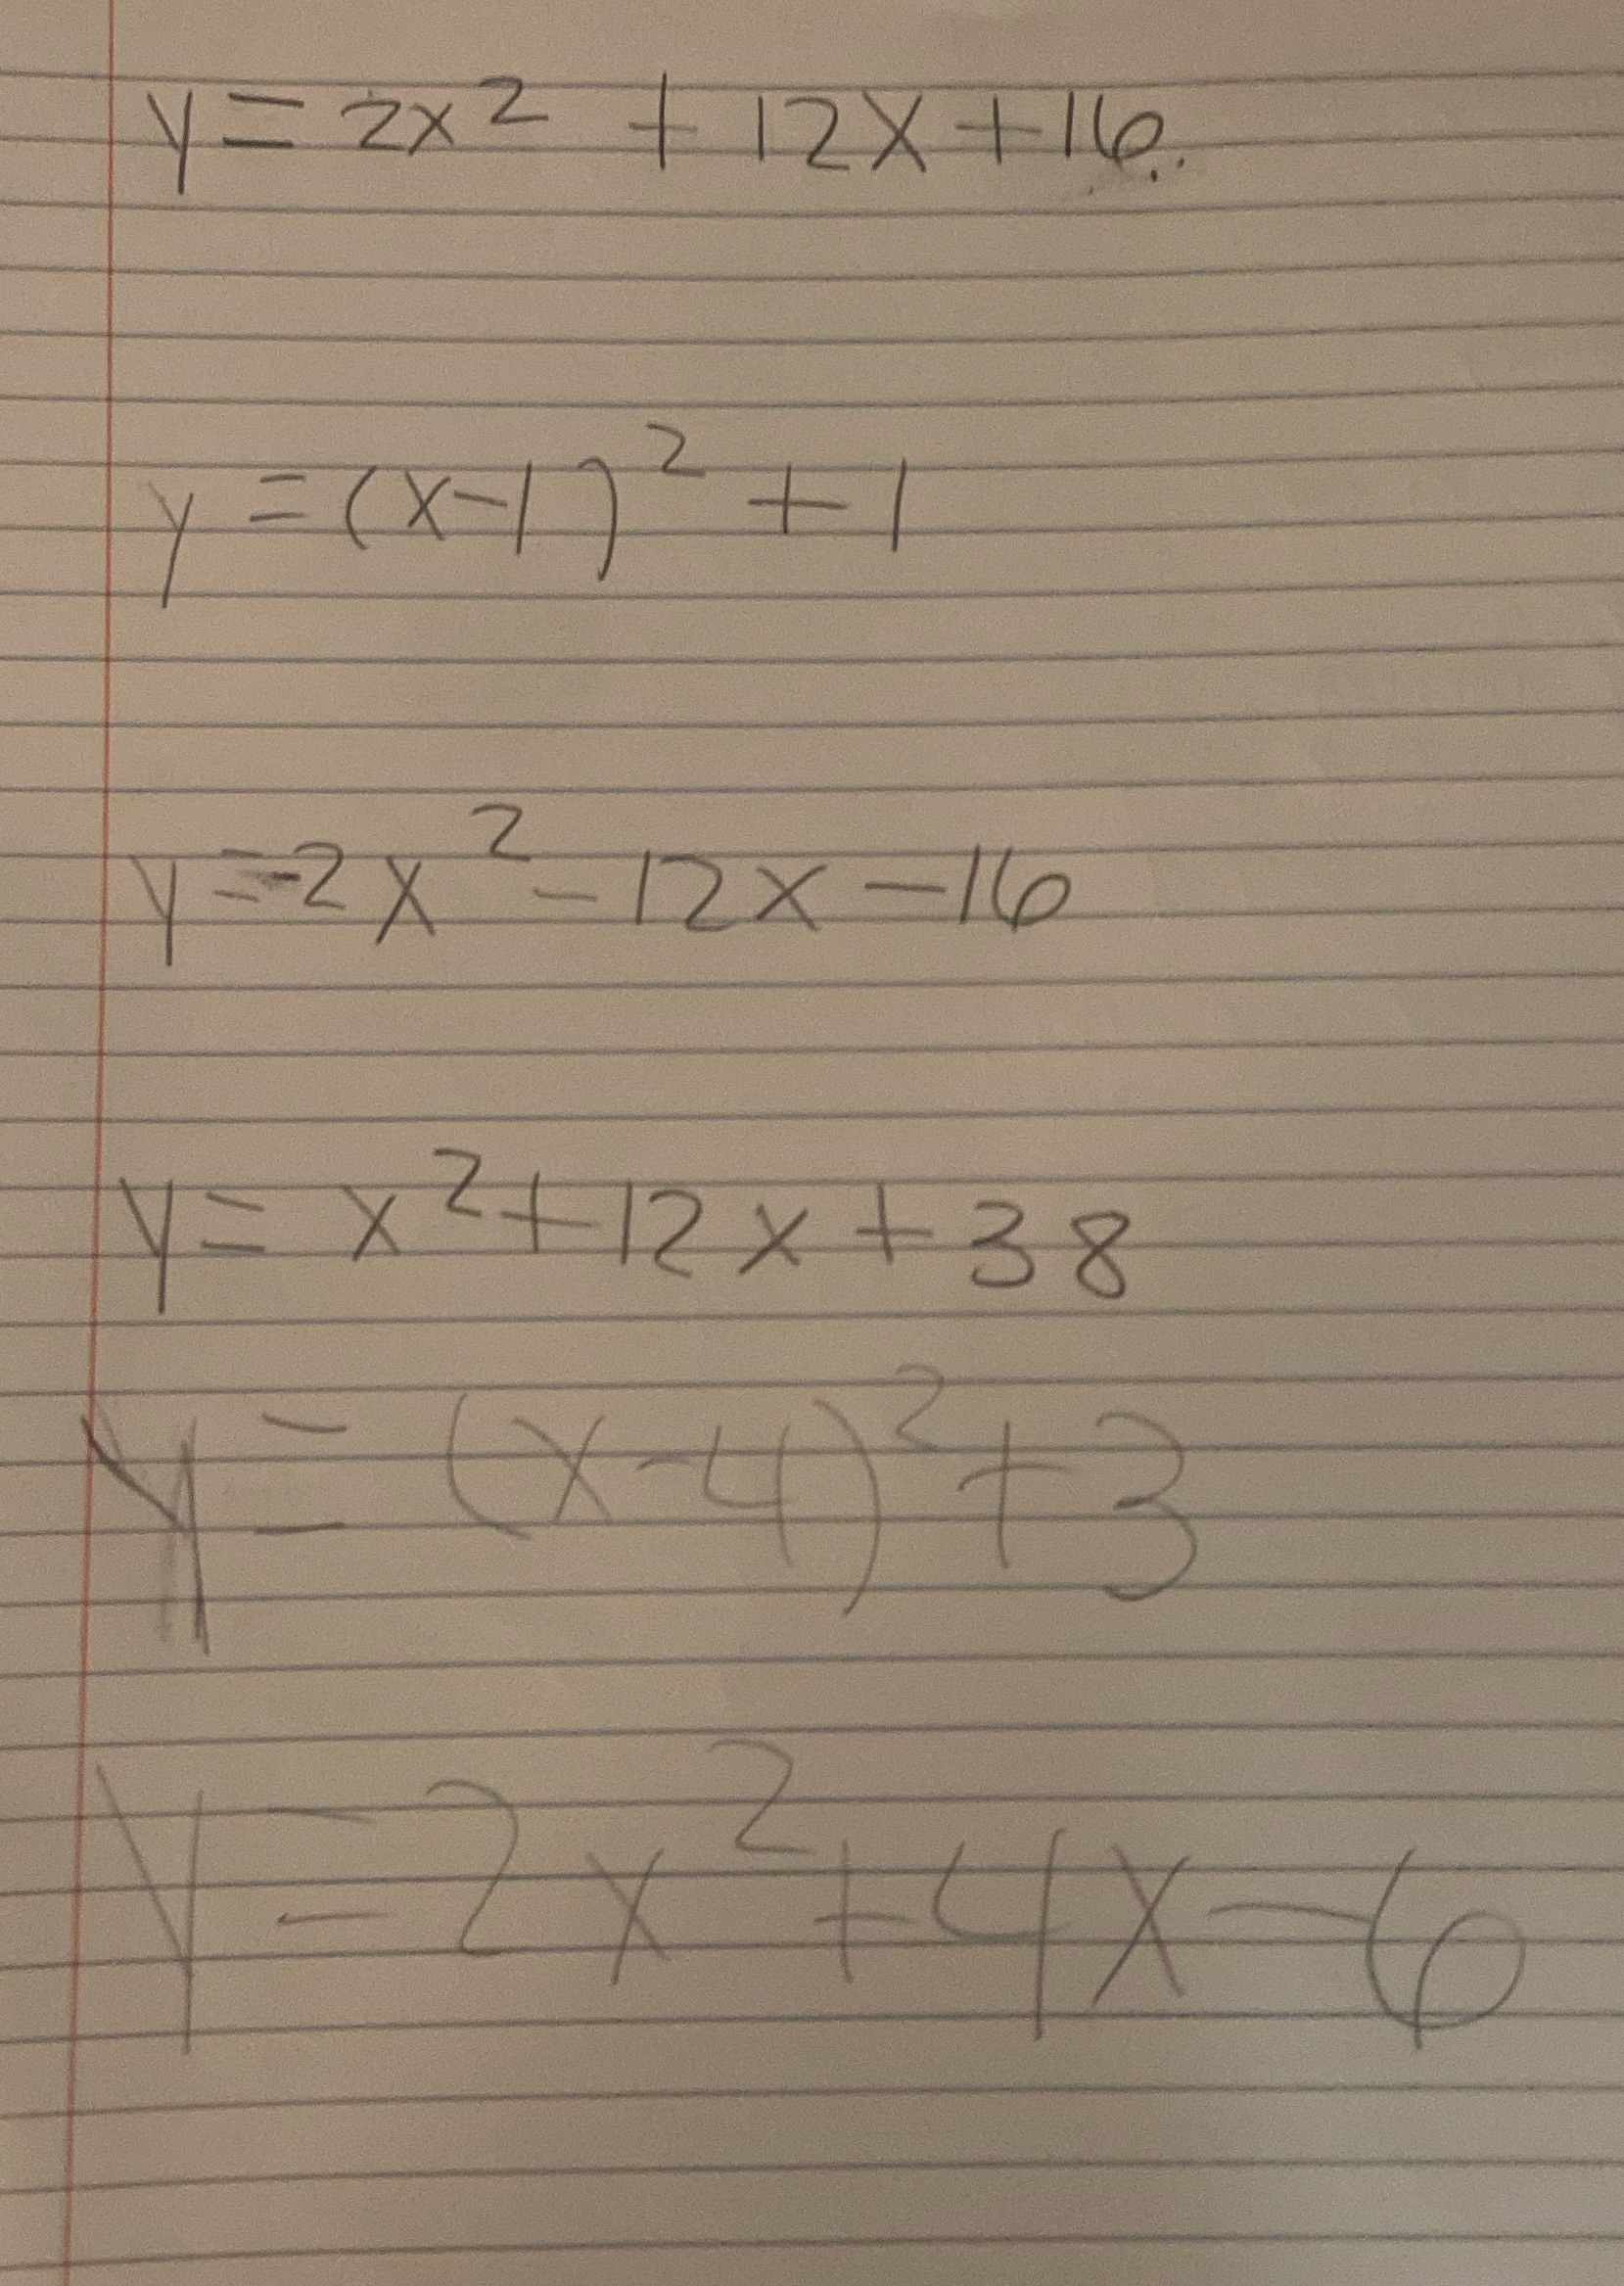 y = 2x² + 12x + 16
y = (x-1)² + 1
y = -2x² - 12x - 16
y = x² + 12x + 38
y = (x-4)² + 3
y = 2x² + 4x - 6